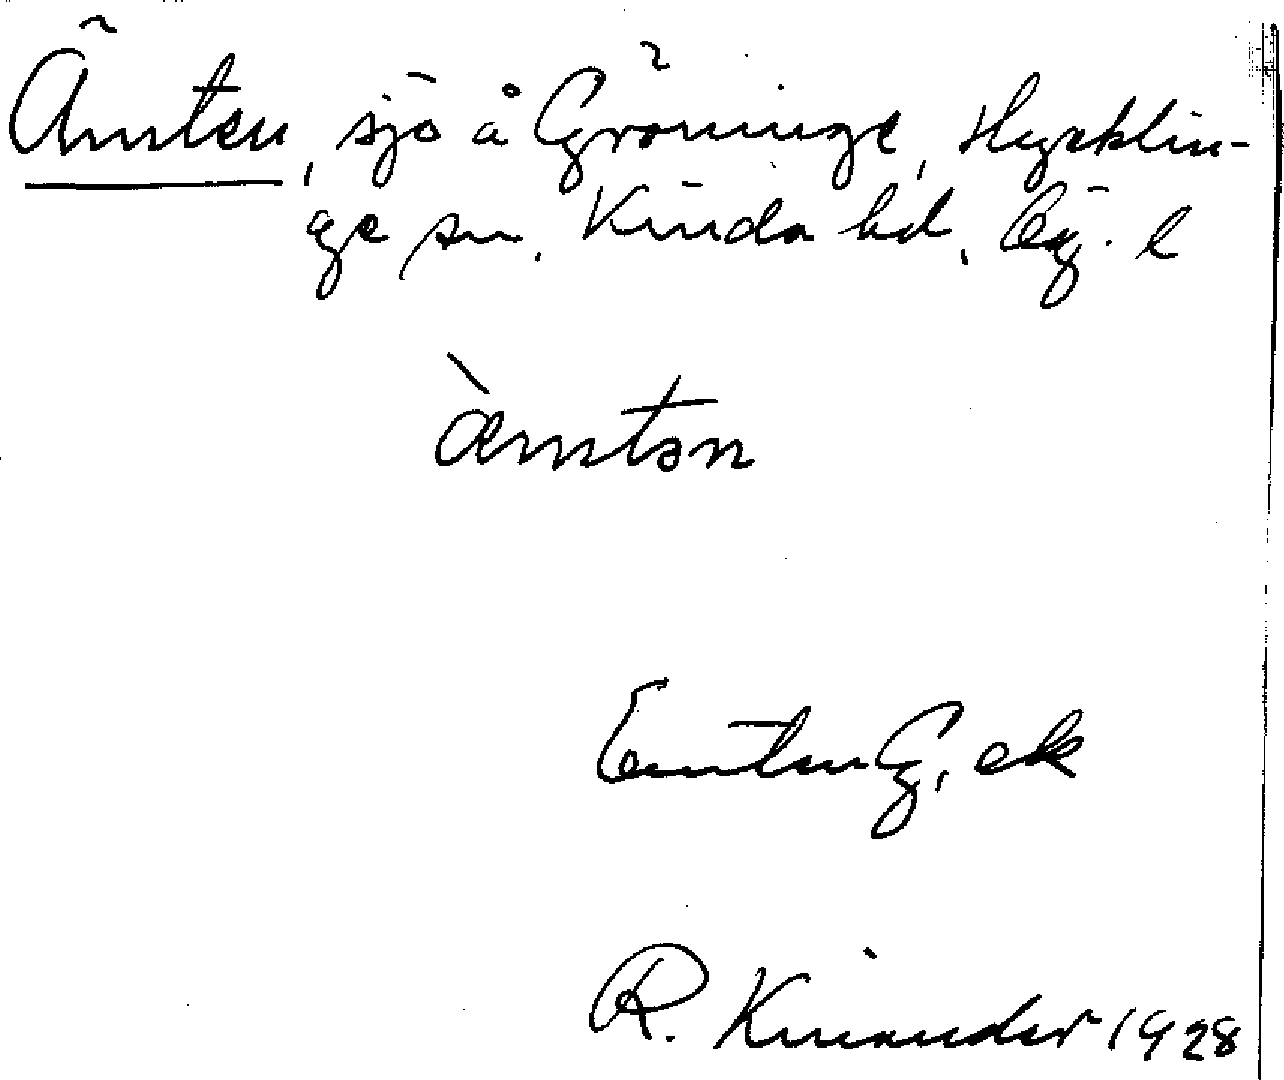 Ämten, sjö å Gröninge, Hycklin-
ge sn. Kinda hd, Ög. l
æ̀mtən
Emten G, ek
R. Kinander 1928